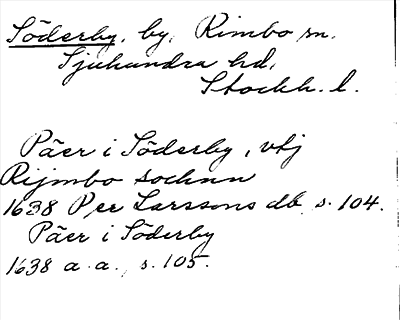 Söderby, by, Rimbo sn.
Sjuhundra hd,
Stockh. l.
Päer i Söderby, vtj
Rijmbo sochnn
1638 Per Larssons db s. 104.
Päer i Söderby
1638 a.a., s. 105.